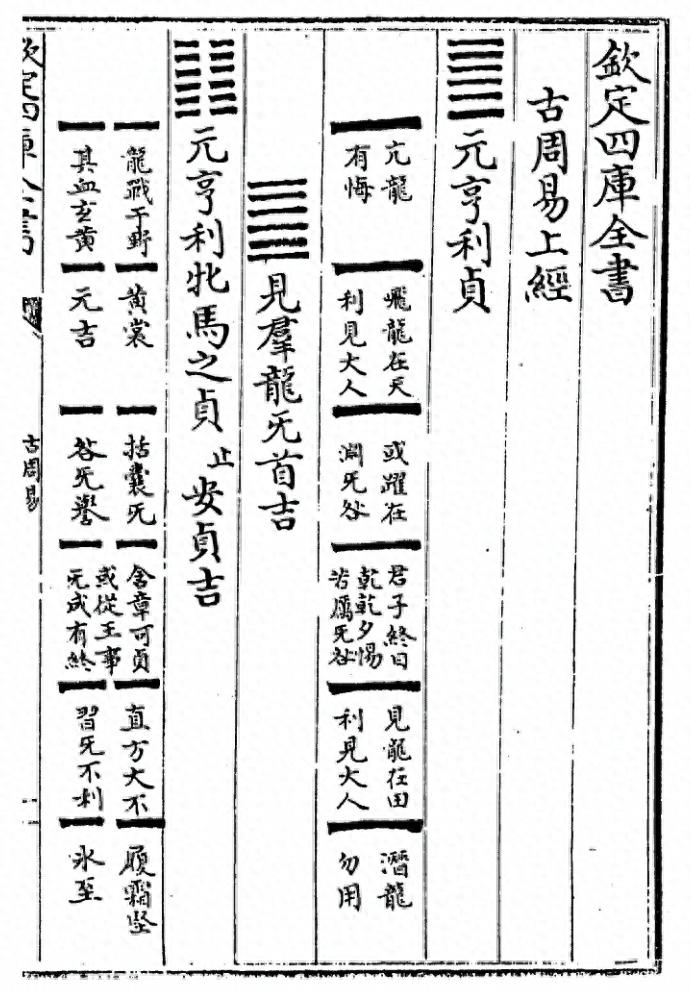 欽定四庫全書
古周易上經
元亨利貞
亢龍
有悔
飛龍在天
利見大人
或躍在
淵无咎
君子終日
乾乾夕惕
若厲无咎
見龍在田
利見大人
潛龍
勿用
見羣龍无首吉
元亨利牝馬之貞 止 安貞吉
龍戰于野
其血玄黄
黄裳
元吉
括囊无
咎无譽
含章可貞
或從王事
无成有終
直方大不
習无不利
履霜堅
氷至
欽定四庫全書
古周易